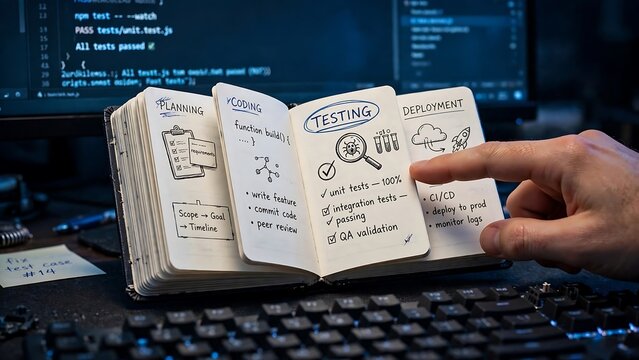 npm test -- --watch
PASS tests/unit.test.js
All tests passed
PLANNING
requirements
Scope → Goal
→ Timeline
CODING
function build() {
.... }
• write feature
• commit code
• peer review
TESTING
✓ unit tests — 100%
☑ integration tests —
passing
☑ QA validation
DEPLOYMENT
• CI/CD
• deploy to prod
• monitor logs
fix
test case
#14